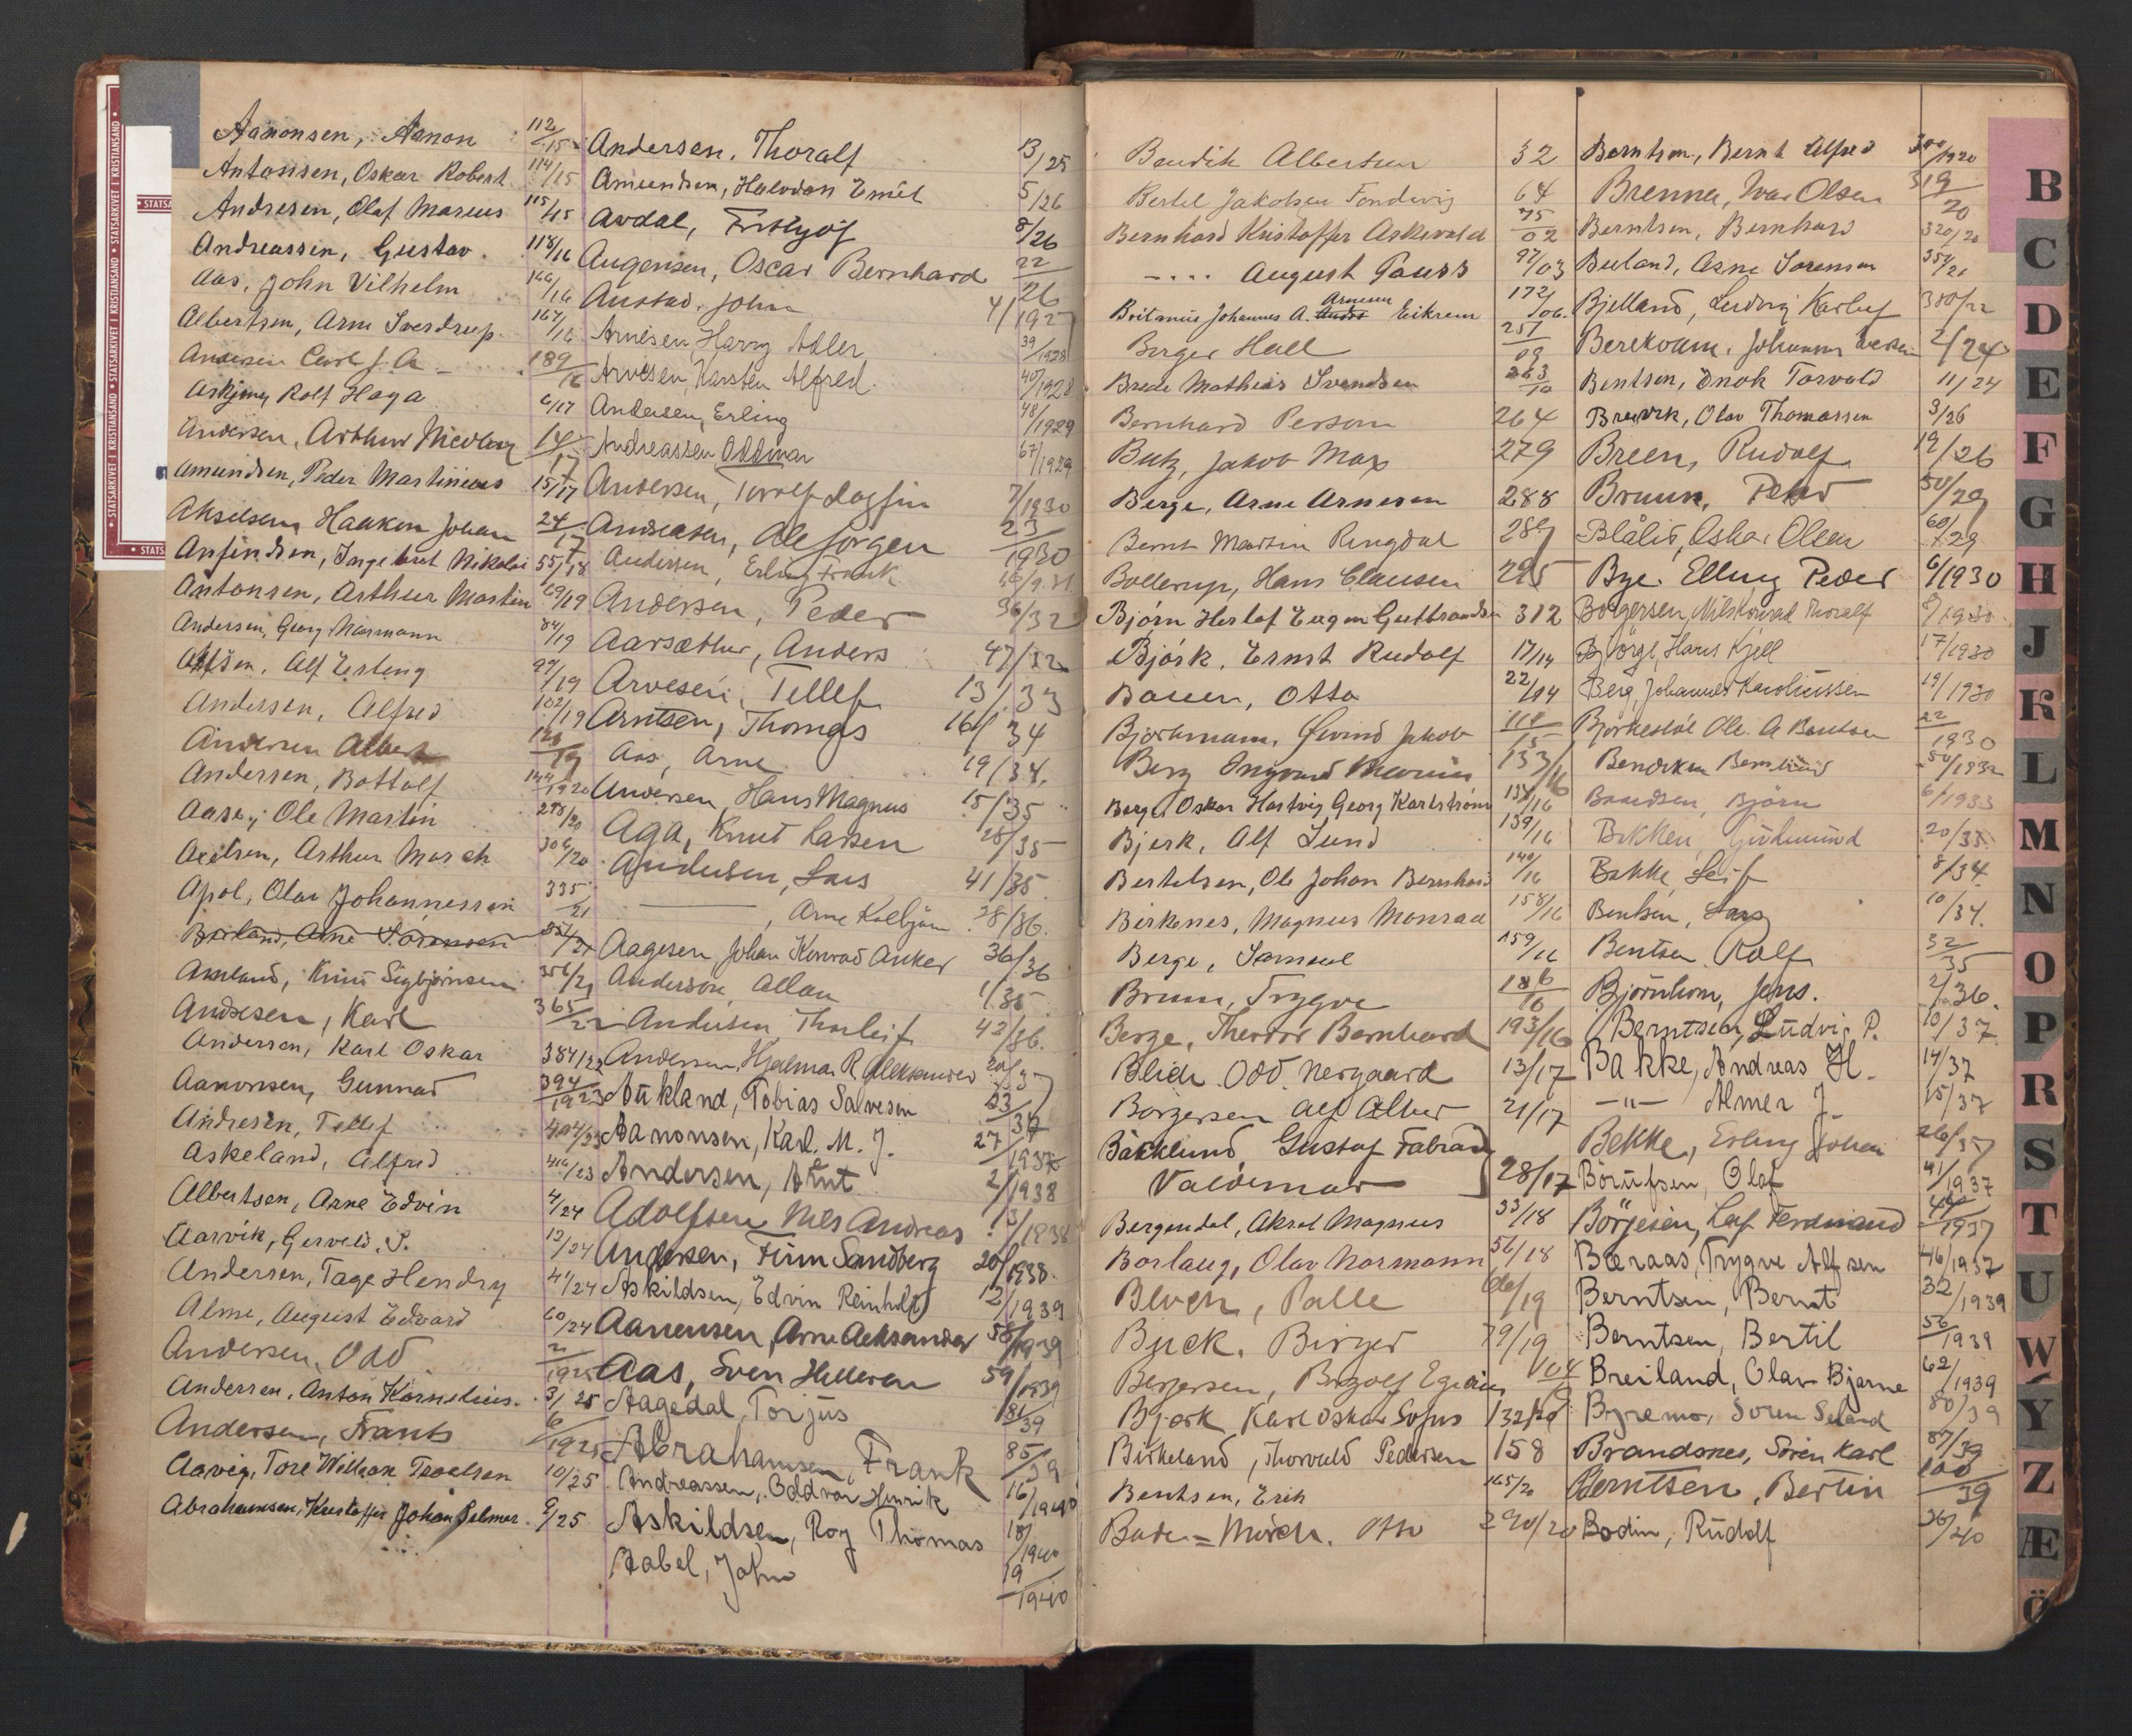 Aanonsen, Aanon 112/15
Antonsen, Oskar Robert 114/15
Andresen, Olaf Marius 115/15
Andreassen, Gustav 118/16
Aas, John Vilhelm 166/16
Albertsen, Arne Sverdrup 167/16
Andersen Carl J. A 189/16
Rolf Haga 6/17
Andersen, Arthur Nicolay 14/17
Amundsen, Peder Martinius 15/17
Akselsen, Haakon Johan 24/17
Anfindsen, Ingebret Nikolai 55/18
Antonsen, Arthur Martin 69/19
Andersen, Georg Normann 84/19
Alfsen, Alf Erling 97/19
Andersen, Alfred 102/19
Andersen Albert 126/19
Andersen, Bottolf 144/1920
Aase, Ole Martin 298/20
Axelsen, Arthur March 306/20
Apol, Olav Johannessen 335/21
Birkeland, Arne Sørensen
Knut Sigbjørnsen 356/21
Andresen, Karl 365/22
Andersen, Karl Oskar 384/22
Aanonsen, Gunnar 394/1923
Andresen, Tellef 404/23
Askeland, Alfred 416/23
Albertsen, Arne Edvin 4/24
Aarvik, Gerveld. S. 12/24
Andersen, Tage Hendry 41/24
Alme, August Edvard 60/24
Andersen, Odd 2/1925
Andersen, Anton Kornelius. 3/25
Andersen, Frants 6/1925
Aavig, Tore William Tevelsen 10/25
Abrahamsen, Kristoffer Johan Selmer. 9/25
Andersen, Thoralf 13/25
Amundsen, Halvdan Emil 5/26
Avdal, Frithjof 8/26
Augensen, Oscar Bernhard 22/26
Austad, John 4/1927
Arnesen, Harry Adler 39/1928
Arnesen, Karsten Alfred. 40/1928
Andersen, Erling 48/1929
Andreassen Oddmar 67/1929
Andersen, Torolf Dagfin 7/1930
Andreasen, Ole Jørgen 23/1930
Andersen, Erling Frank
Andersen, Peder 36/32
Aarsæther, Anders 47/32
Arvesen, Tellef 13/33
Arntsen, Thomas 16/34
Aas, Arne 19/34.
Andersen, Hans Magnus 15/35
Aga, Knut Larsen 28/35
Andersen, Lars 41/35
———, Arne Kolbjørn 28/36.
Aagesen, Johan Konrad Anker 36/36
Anderson, Allan 1/35
Andersen, Thorleif 42/36.
Andersen, Hjalmar R. Aleksander 20/37
Aukland, Tobias Salvesen 23/37
Aanonsen, Karl. M. J. 27/1937
Andersen, Arnt 2/1938
Adolfsen Nils Andreas 3/1938
Andersen, Finn Sandberg 20/1938.
Askildsen, Edvin Reinholdt 12/1939
Aanensen, Arne Aleksander 58/1939
Aas, Sven Helleren 59/1939
Aagedal, Torjus 81/39
Abrahamsen, Frank 85/39
Andreassen, Oddvar Henrik 16/1940
Askildsen, Roy Thomas 18/1940
Aabel, John 19/1940
Bendik Albertsen 32
Bertel Jakobsen 64
Bernhard Kristoffer Askevold 75/02
–.... August Pauss 97/03
Britanius Johannes A. Arnesen Eikrem 172/06.
Berger Hall 251/09
Brede Mathias Svendsen 263/10
Bernhard Person 264
Butz, Jakob Max 279
Berge, Arne Arnesen 288
Bernt Martin Ringdal 289
Bollerup, Hans Clausen 295
Bjørn Herlof Eugen Gulbrandsen 312
Bjørk, Ernst Rudolf 17/14
Bauer, Otto 22/14
Bjørkmann, Øivind Jakob 118/15
Berg Ingvard Marius 133/16
Berge, Oskar Hartvig Georg Karlstrøm 138/16
Bjerk, Alf Lund 139/16
Bertelsen, Ole Johan Bernhard 140/16
Birkenes, Magnus Monrad 158/16
Berge, Samuel 159/16
Bruun, Trygve 186/16
Berge, Theodor Bernhard 193/16
Blich Odd Nergaard 13/17
Borgersen Alf Albert 21/17
Bäcklund, Gustaf Fabian
Valdemar 28/17
Bergendal, Aksel Magnus 33/18
Borlaug, Olav Normann 56/18
Bloch, Palle
Buck, Birger 79/19
Bergersen, 104
Bjørk, Karl Oskar Sofus 132/20
Birkeland, Thorvald Pedersen 158
Bentsen, Erik 165/20
Bade = Mørch. Otto 290/20
Berntsen, Bernt Alfred 300/1920
Brenna, Ivar Olsen 319/20
Berntsen, Bernhard 320/20
Arne Sørensen 354/21
Bjelland, Ludvig Karluf 380/22
Berekvam, Johannes 2/24
Bentsen, Enok Torvald 11/24
Brevik, Olav Thomassen 3/26
Breen, Rudolf 19/26
Bruun, Peter 50/29
Blålid, Oskar Olsen 60/29
Bye. Elling Peder 6/1930
Borgersen, Nils Konrad Thoralf 9/1930
Bjørge, Hans Kjell 17/1930
Berg, Johannes Karoliussen 19/1930
Bjørkestøl Ole A Bentsen 22/1930
50/1932
Bjørn 6/1933
Bakken, Gudmund 20/33
Bakke, Leif 8/34.
Bentsen, Lars 10/34.
Bentsen, Rolf 32/35
Bjørnholm, Jens. 2/36.
Berntsen, Ludvig P. 10/37
Bakke, Andreas H. 14/37
–"– Almer J. 15/37
Bekke, Erling Johan 26/37
Börufsen, Olaf 41/1937
Börjesen, Leif Ferdinand 44/1937
Bæraas, Trygve Alfsen 46/1937
Berntsen, Bernt 32/1939
Berntsen, Bertil 56/1939
Breiland, Olav Bjarne 62/1939
Byremo, Søren Seland 80/39
Brandsnes, Søren Karl 87/39
Berntsen, Bertin 100/39
Bodin, Rudolf 36/40
B
C
D
E
F
G
H
J
K
L
M
N
O
P
R
S
T
U
W
Y
Z
Æ
Ö
STATSARKIVET I KRISTIANSAND • STATSARKIVET I KRISTIANSAND • STATSARKIVET I KRISTIANSAND •